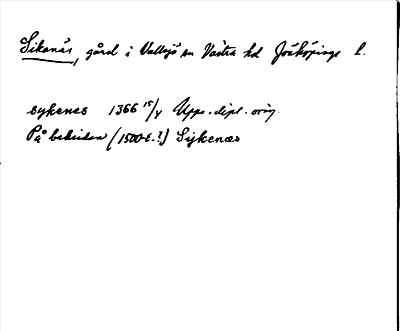 Sikanäs, gård i Vallsjö sn Västra hd Jönköpings l.
sykenes 1366 15/4 Upps. dipl. orig.
På baksidan (1500-t.?) Sijkenæs